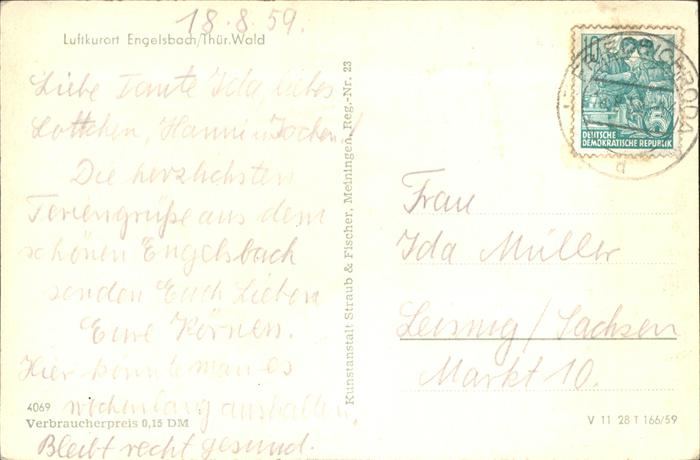 18.8.59.
Luftkurort Engelsbach/Thür.Wald
Liebe Tante Ida, liebes
Lottchen, Hanni u. Jochen!
Die herzlichsten
Feriengrüße aus dem
schönen Engelsbach
senden Euch Lieben
Eure Körnen.
Hier könnte man es
wochenlang aushalten.
Bleibt recht gesund.
4069
Verbraucherpreis 0,15 DM
Kunstanstalt Straub & Fischer, Meiningen, Reg.-Nr. 23
10
5
DEUTSCHE
DEMOKRATISCHE REPUBLIK
FRIEDRICHRODA
d
Frau
Ida Müller
Leisnig/Sachsen
Markt 10.
V 11 28 T 166/59